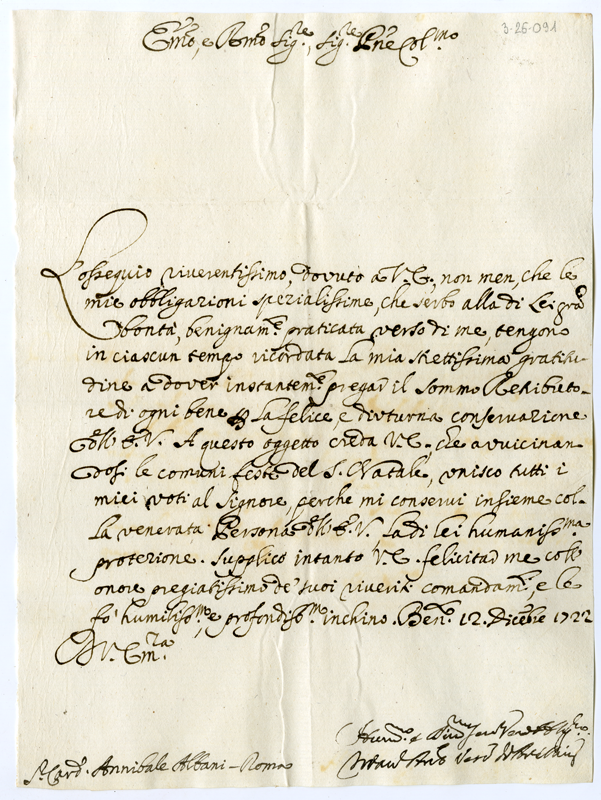 3-26-091
Em̃o, e Rm̃o Sig.re, Sig.re Pn̄e Col.mo
L'ossequio riverentissimo, dovuto a V.E., non men, che le
mie obbligazioni spezialissime, che serbo alla di Lei gran
bontà, benignam.e praticata verso di me, tengono
in ciascun tempo ricordata la mia strettissima gratitu-
dine a dover instantem.e pregar il Sommo Retribuito-
re di ogni bene la felice e diuturna conservazione
dell'E.V. A questo oggetto creda V.E. che avvicinan
dosi le comuni feste del S. Natale, unisco tutti i
miei voti al Signore, perche mi conservi insieme col-
la venerata Persona dell'E.V. la di lei humaniss.ma
protezione. Supplico intanto V.E. felicitar me coll'
onore pregiatissimo de' suoi riveriti comandam.ti, e le
fò humiliss.mo, e profondiss.mo inchino. Ben.to 12. Dicẽbre 1722
D. V. Em.za
Hum.mo e
S.r Card. Annibale Albani - Roma